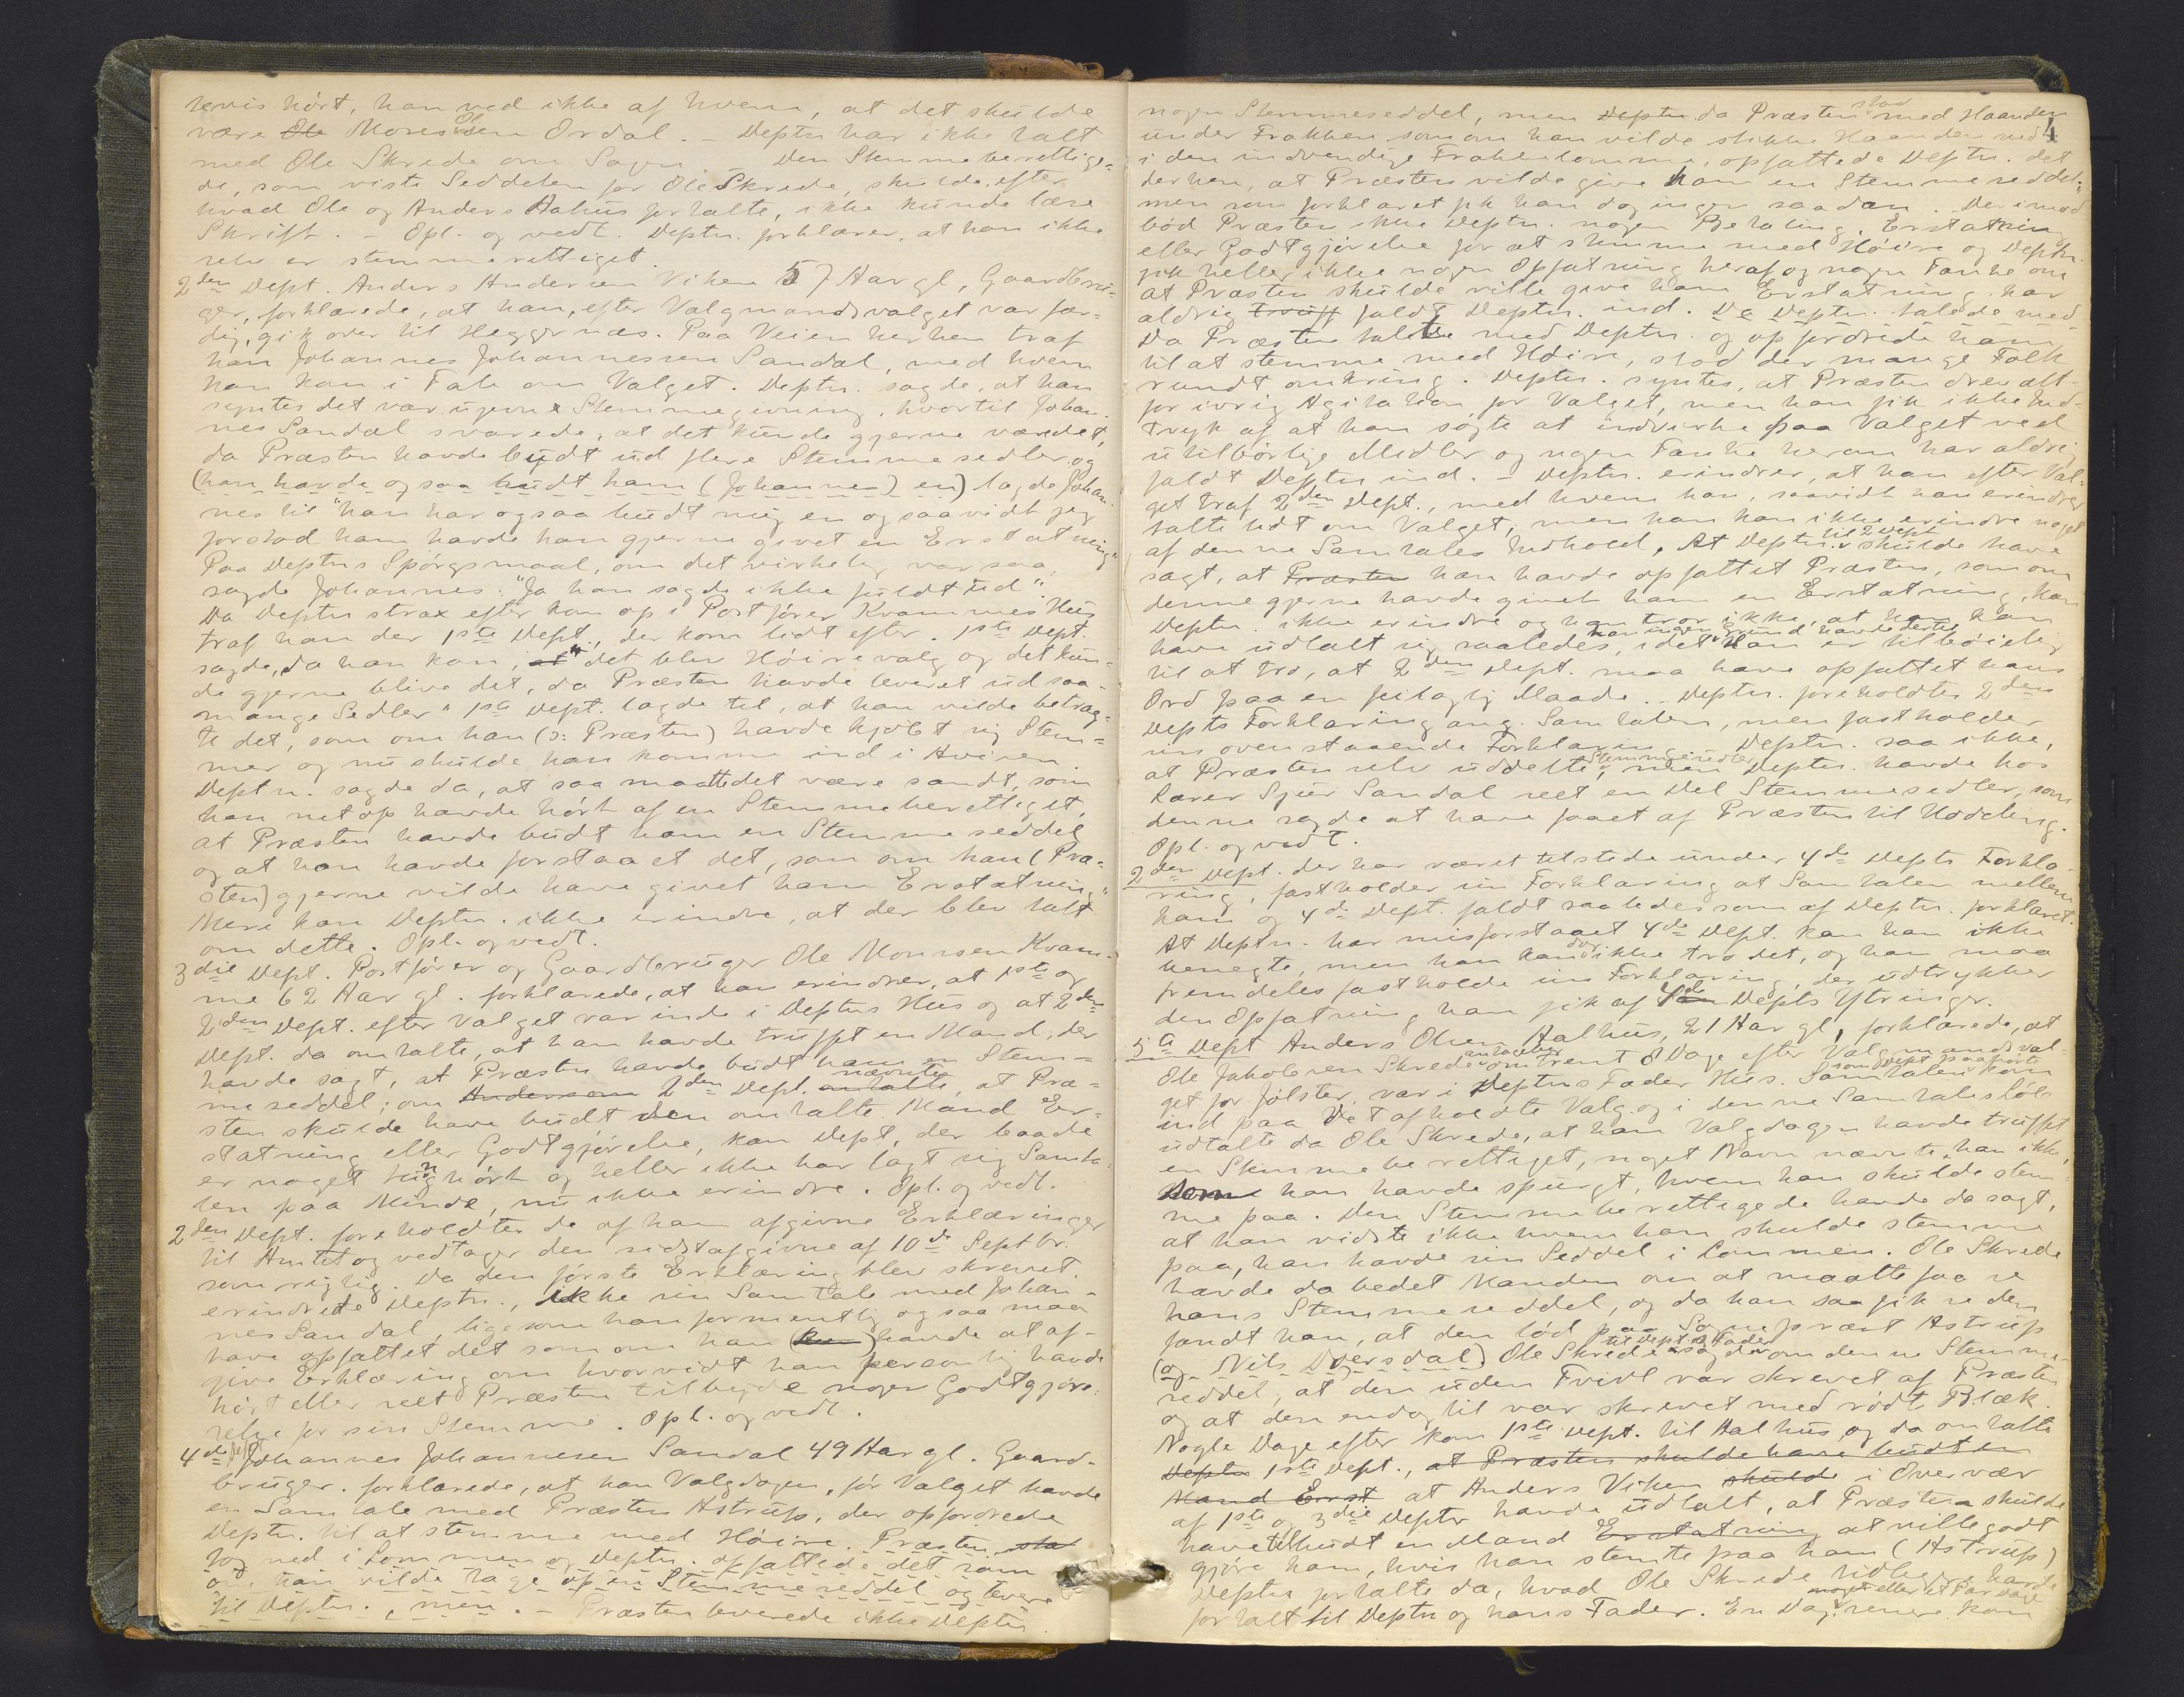 revis hört, han ved ikke af hvem, at det skulde
være Ole Mons Olsen Ordal. – Deptn har ikke talt
med Ole Skrede om Sagen. Den Stemmeberettige-
de, som viste Seddelen for Ole Skrede, skulde, efter
hvad Ole og Anders Aahus fortalte, ikke kunde læse
Skrift. – Opl. og vedt. Deptn. forklarer, at han ikke
selv er stemmerettiget.
2den Dept. Anders Andersen Viken 57 Aar gl, Gaardbru-
ger, forklarede, at han, efter Valgmandsvalget var fær-
dig, gik over til Heggenæs. Paa Veien herhen traf
han Johannes Johannessen Sandal, med hvem
han kom i Tale om Valget. Deptn. sagde, at han
syntes det var ujevne Stemmegivning, hvortil Johan-
nes Sandal svarede, at det kunde gjerne være det,
da Præsten havde budt ud flere Stemmesedler og
(han havde ogsaa budt ham (Johannes) en) lagde Johan-
nes til "han har ogsaa budt mig en og saavidt jeg
forstod ham havde han gjerne givet en Erstatning"
Paa Deptns Spörgsmaal, om det virkelig var saa,
sagde Johannes: "Ja han sagde ikke fuldt ud".
Da Deptn strax efter kom op i Postförer Kvammes Hus
traf han der 1ste Dept., der kom lidt efter. 1ste Dept.
sagde, da han kom, at "det blev Höirevalg og det kun-
de gjerne blive det, da Præsten havde leveret ud saa-
mange Sedler" 1ste Dept. lagde til, at han vilde betrag-
te det, som om han (ɔ: Præsten) havde kjöbt sig Stem-
mer og nu skulde han komme ind i Avisen.
Deptn. sagde da, at saa maatte det være sandt, som
han netop havde hört af en Stemmeberettiget,
at Præsten havde budt ham en Stemmeseddel
og at han havde forstaaet det, som om han (Præ-
sten) gjerne vilde have givet ham Erstatning"
Mere kan Deptn. ikke erindre, at der blev talt
om dette. Opl. og vedt.
3die Dept. Postförer og Gaardbruger Ole Monssen Kvam-
me 62 Aar gl. forklarede, at han erindrer, at 1ste og
2den Dept. efter Valget var inde i Deptns Hus og at 2den
Dept. da omtalte, at han havde truffet en Mand, der
havde sagt, at Præsten havde budt ham en Stem-
meseddel; om Anders om 2den Dept. omtalte nævnte, at Præ-
sten skulde have budt den omtalte Mand Er-
statning eller Godtgjörelse, kan Dept, der baade
er noget tunghört og heller ikke har lagt sig Samta-
len paa Minde, nu ikke erindre. Opl. og vedt.
2den Dept. foreholdtes de af ham afgivne Erklæringer
til Amtet og vedtager den sidst afgivne af 10de Septbr.
som rigtig. Da den förste Erklæring blev skrevet
erindrede Deptn., ikke sin Samtale med Johan-
nes Sandal, ligesom han formentlig ogsaa maa
have opfattet det som om han (kun) havde at af-
give Erklæring om hvorvidt han personlig havde
hört eller seet Præsten tilbyde nogen Godtgjöre-
relse for sin Stemme. Opl. og vedt.
4de Dept Johannes Johannesen Sandal 49 Aar gl. Gaard-
bruger. forklarede, at han Valgdagen, för Valget havde
en Samtale med Præsten Astrup, der opfordrede
Deptn. til at stemme med Höire. Præsten sto
tog ned i Lommen og Deptn. opfattede det som
om han vilde tage op en Stemmeseddel og levere
til Deptn., men. – Præsten leverede ikke Deptn
4
nogen Stemmeseddel, men Deptn da Præsten stod med Haanden
under Frakken som om han vilde stikke Haanden ned
i den indvendige Frakkelomme, opfattede Deptn. det
derhen, at Præsten vilde give ham en Stemmeseddel;
men som forklaret fik han dog ingen saadan. Derimod
böd Præsten ikke Deptn. nogen Betaling, Erstatning
eller Godtgjörelse for at stemme med Höire og Deptn.
fik heller ikke nogen Opfatning heraf og nogen Tanke om
at Præsten skulde ville give ham Erstatning har
aldrig truff faldt Deptn. ind. Da Deptn. talede med
Da Præsten talte med Deptn. og opfordrede ham
til at stemme med Höire, stod der mange Folk
rundt omkring. Deptn. syntes, at Præsten drev alt-
for ivrig Agitation for Valget, men han fik ikke Ind-
tryk af at han sögte at indvirke paa Valget ved
utilbörlige Midler og nogen Tanke herom har aldrig
faldt Deptn ind. – Deptn. erindrer, at han efter Val-
get traf 2den Dept., med hvem han, saavidt han erindrer
talte lidt om Valget, men han kan ikke erindre noget
af denne Samtales Indhold. At Deptn. til 2 Dept skulde have
sagt, at Præsten han havde opfattet Præsten, som om
denne gjerne havde givet ham en Erstatning, kan
Deptn. ikke erindre og han tror ikke, at han kan
have udtalt sig saaledes, idet han ingen Grund havde dertil. Han er tilböielig
til at tro, at 2den Dept. maa have opfattet hans
Ord paa en feilagtig Maade. – Deptn. foreholdtes 2den
Depts Forklaring ang. Samtalen, men fastholder
sin ovenstaaende Forklaring. Deptn. saa ikke,
at Præsten selv uddelte Stemmesedler, men Deptn. havde hos
Lærer Sjur Sandal seet en Del Stemmesedler, som
denne sagde at have faaet af Præsten til Uddeling.
Opl. og vedt.
2den Dept. der har været tilstede under 4de Depts Forkla-
ring, fastholder sin Forklaring at Samtalen mellem
ham og 4de Dept. faldt saaledes som af Deptn. forklaret.
At Deptn. har misforstaaet 4de Dept. kan han ikke
benegte, men han kan dog ikke tro det, og han maa
fremdeles fastholde sin Forklaring, der udtrykker
den Opfatning, han fik af 4de Depts Ytringer.
5te Dept Anders Olsen Aalhus, 21 Aar gl, forklarede, at
Ole Jakobsen Skrede antagelig omtrent 8 Dage efter Valgmandsval-
get for Jölster, var i Deptns Fader Hus. Samtalen kom
ind paa det afholdte Valg og i denne Samtales Löb
udtalte da Ole Skrede, at han Valgdagen havde truffet
en Stemmeberettiget, noget Navn nævnte han ikke,
som han havde spurgt, hvem han skulde stem-
me paa. Den Stemmeberettigede havde da sagt,
at han vidste ikke hvem han skulde stemme
paa, han havde sin Seddel i Lommen. Ole Skrede
havde da bedet Manden om at maatte faa se
hans Stemmeseddel, og da han saa fik se den
fandt han, at den löd paa Sogneprest Astrup
(og Nils Dvergsdal) Ole Skrede sagde til Deptns Fader om denne Stemme-
seddel, at den uden Tvivl var skrevet af Præsten
og at den endog til var skrevet med rödt Blæk.
Nogle Dage efter kom 1ste Dept. til Aalhus og da omtalte
Deptn 1ste Dept., at Præsten skulde have budt en
Mand Erst at Anders Viken skulde i Overvær
af 1ste og 3die Deptn havde udtalt, at Præsten skulde
have tilbudt en Mand Erstatning at ville godt
gjöre ham, hvis han stemte paa ham (Astrup)
Deptn fortalte da, hvad Ole Skrede tidligere havde
fortalt til Deptn og hans Fader. En Dag eller et Par Dage senere kom